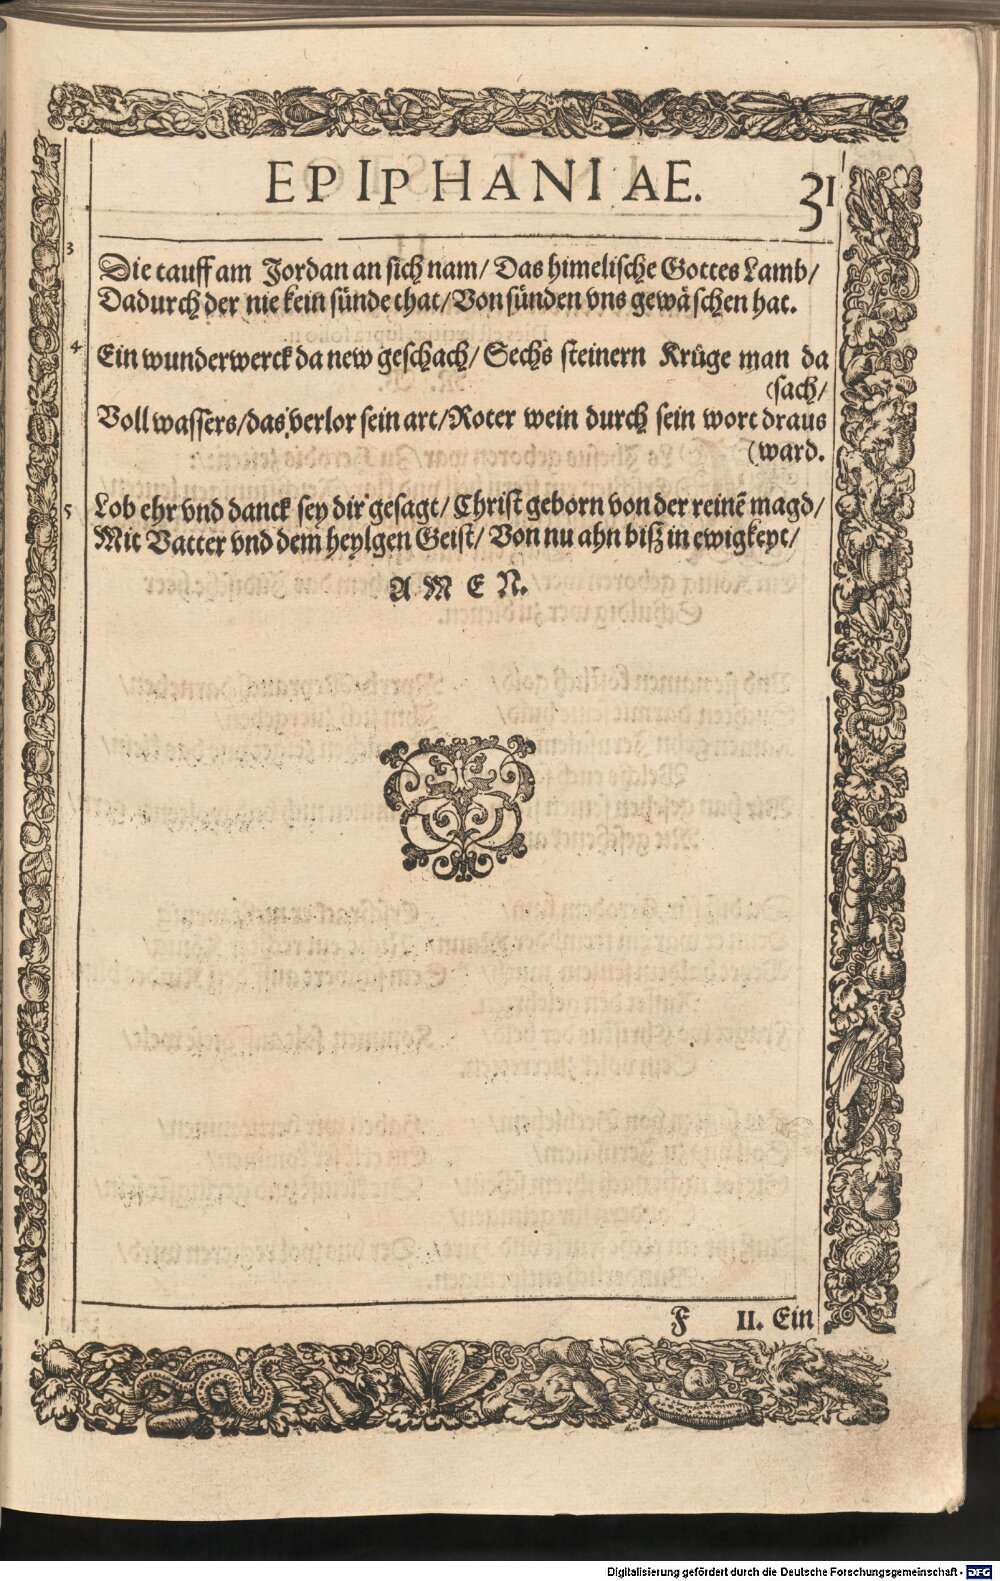 EPIPHANIAE.
31
3
Die tauff am Jordan an sich nam/ Das himelische Gottes Lamb/
Dadurch der nie kein sünde that/ Von sünden vns gewäschen hat.
4
Ein wunderwerck da new geschach/ Sechs steinern Krůge man da
(sach/
Voll wassers/das verlor sein art/Roter wein durch sein wort draus
(ward.
5
Lob ehr vnd danck sey dir gesagt/ Christ geborn von der reinē magd/
Mit Vatter vnd dem heylgen Geist/ Von nu ahn biß in ewigkeyt/
AMEN.
F II. Ein
Digitalisierung gefördert durch die Deutsche Forschungsgemeinschaft - DFG